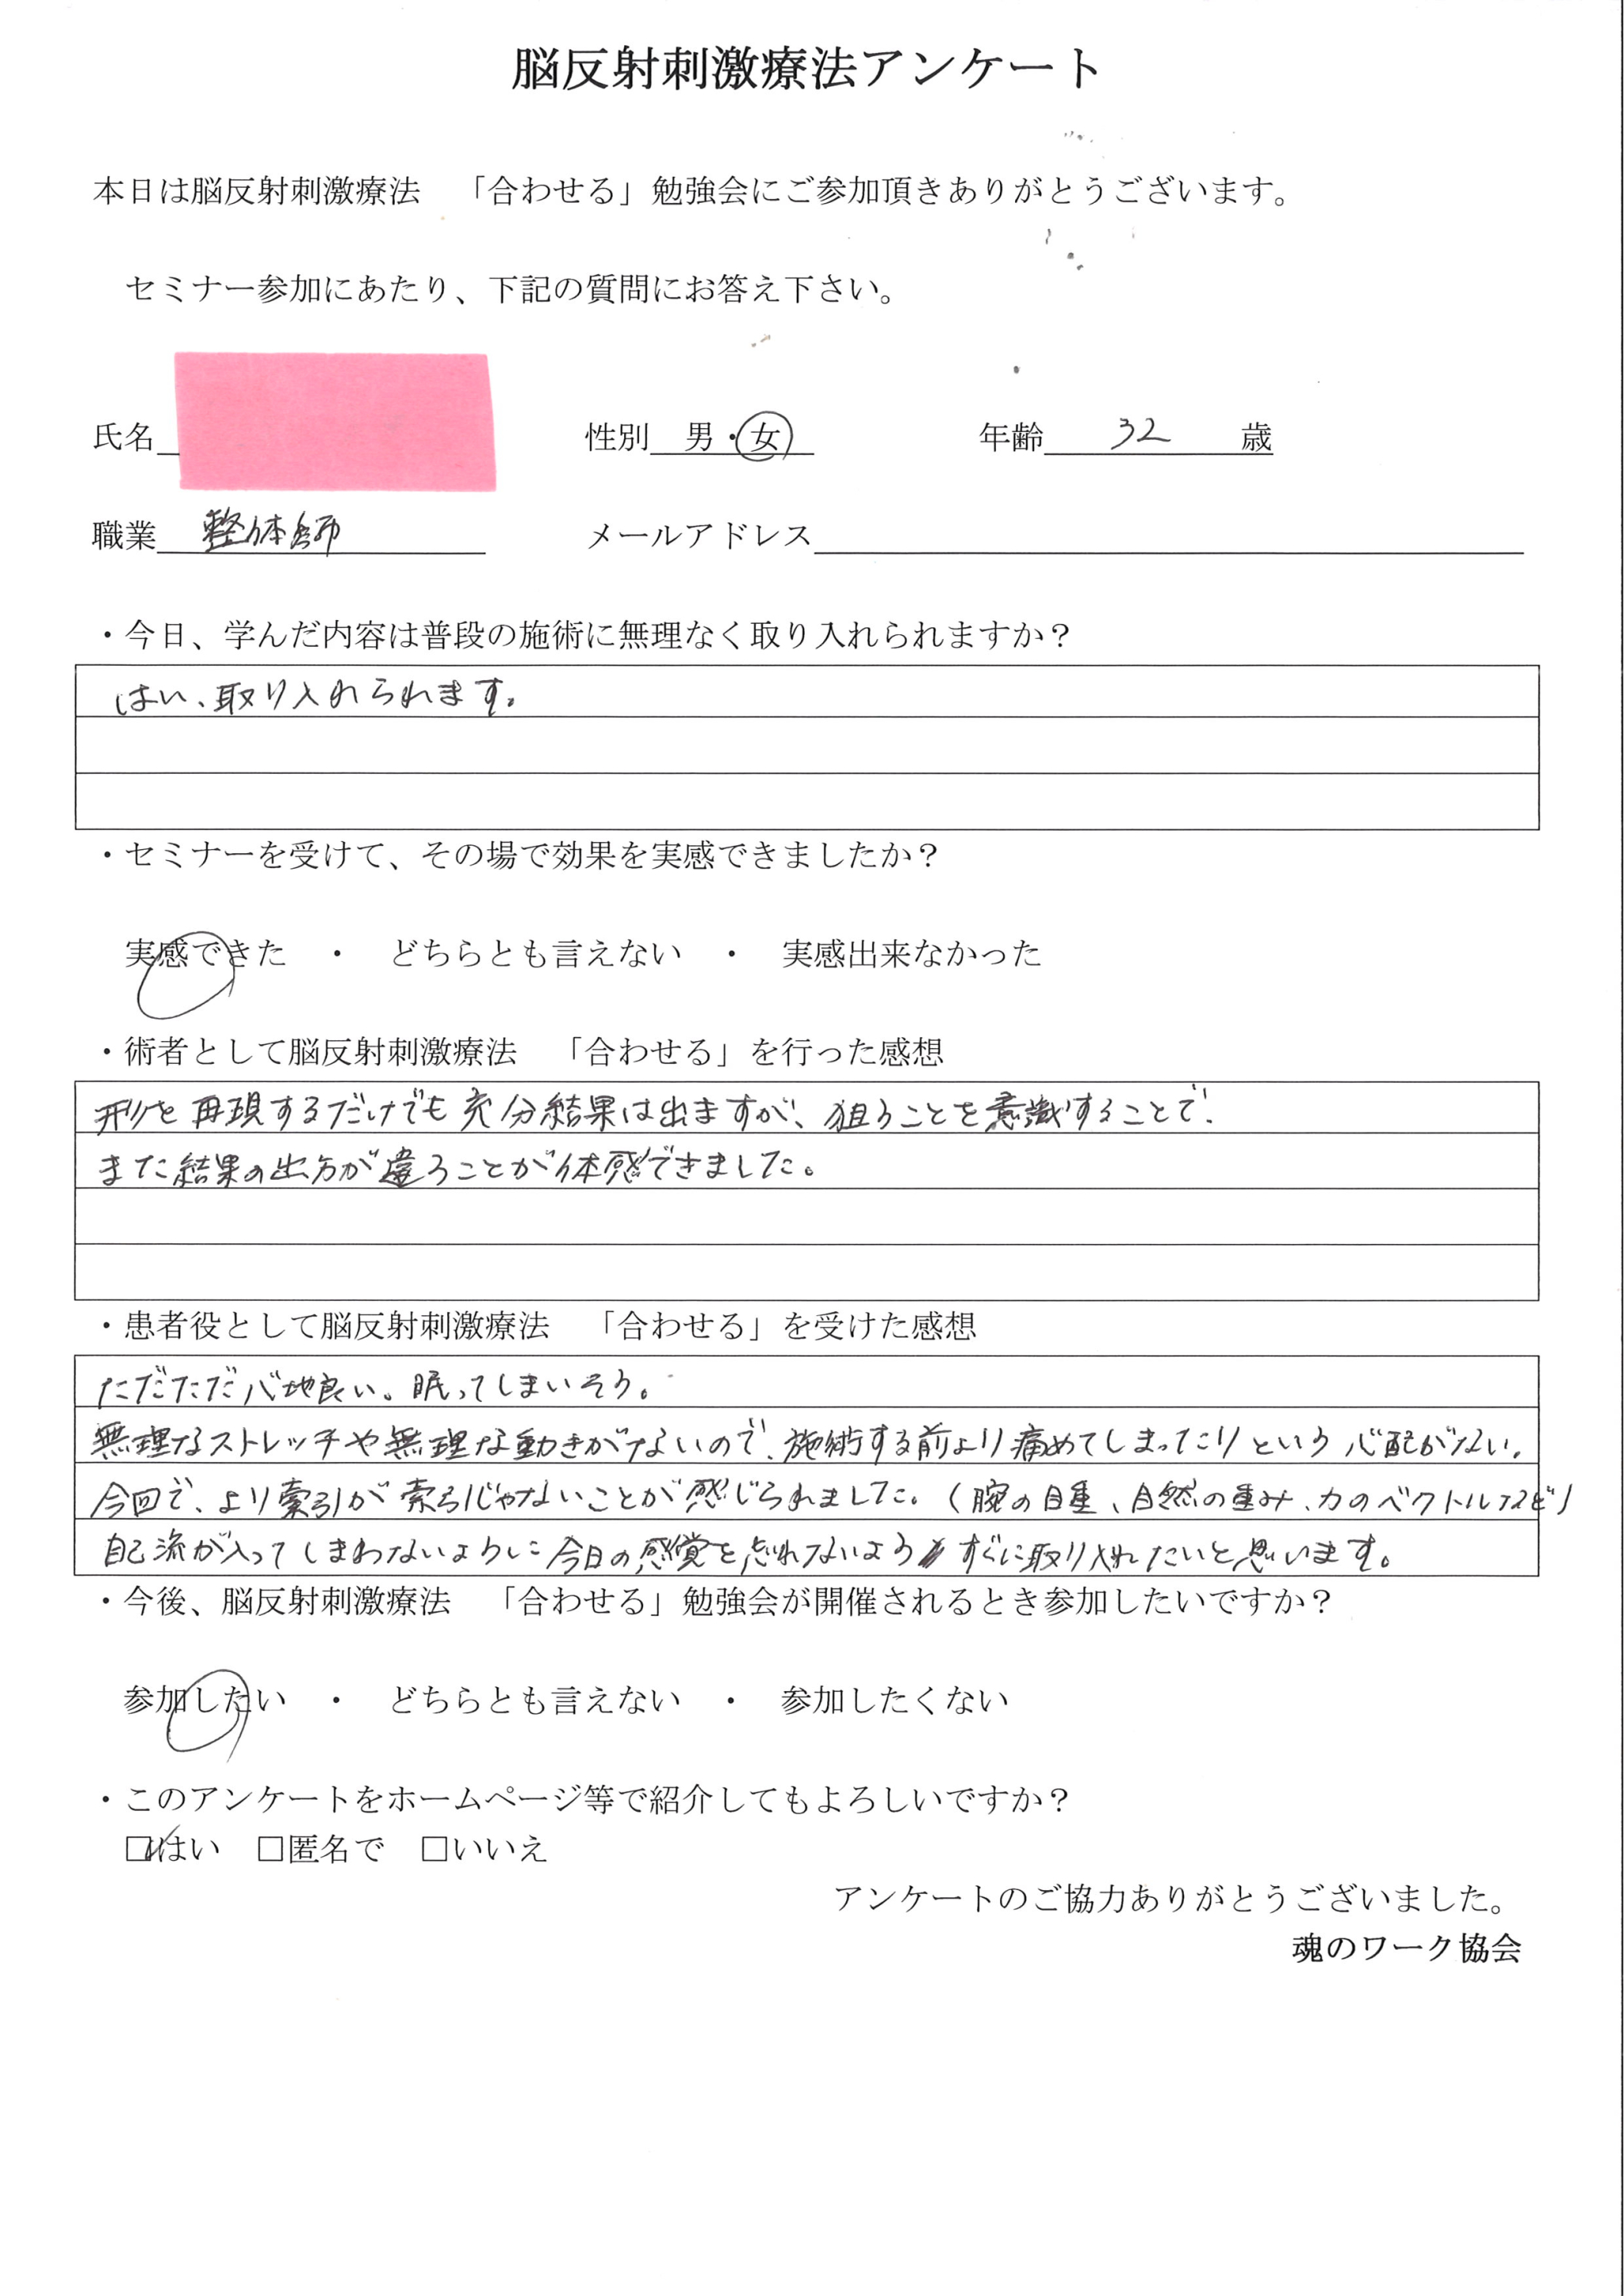 脳反射刺激療法アンケート
本日は脳反射刺激療法　「合わせる」勉強会にご参加頂きありがとうございます。
セミナー参加にあたり、下記の質問にお答え下さい。
氏名　性別　男・女　年齢　32　歳
職業　整体師　メールアドレス
・今日、学んだ内容は普段の施術に無理なく取り入れられますか？
はい、取り入れられます。
・セミナーを受けて、その場で効果を実感できましたか？
実感できた　・　どちらとも言えない　・　実感出来なかった
・術者として脳反射刺激療法　「合わせる」を行った感想
形を再現するだけでも充分結果は出ますが、狙うことを意識することで、
また結果の出方が違うことが体感できました。
・患者役として脳反射刺激療法　「合わせる」を受けた感想
ただただ心地良い。眠ってしまいそう。
無理なストレッチや無理な動きがないので、施術する前より痛めてしまったりという心配がない。
今回で、より索引が索引じゃないことが感じられました。（腕の自重、自然の重み、力のベクトルなど）
自己流が入ってしまわないように今日の感覚を忘れないようすぐに取り入れたいと思います。
・今後、脳反射刺激療法　「合わせる」勉強会が開催されるとき参加したいですか？
参加したい　・　どちらとも言えない　・　参加したくない
・このアンケートをホームページ等で紹介してもよろしいですか？
☑はい　□匿名で　□いいえ
アンケートのご協力ありがとうございました。
魂のワーク協会